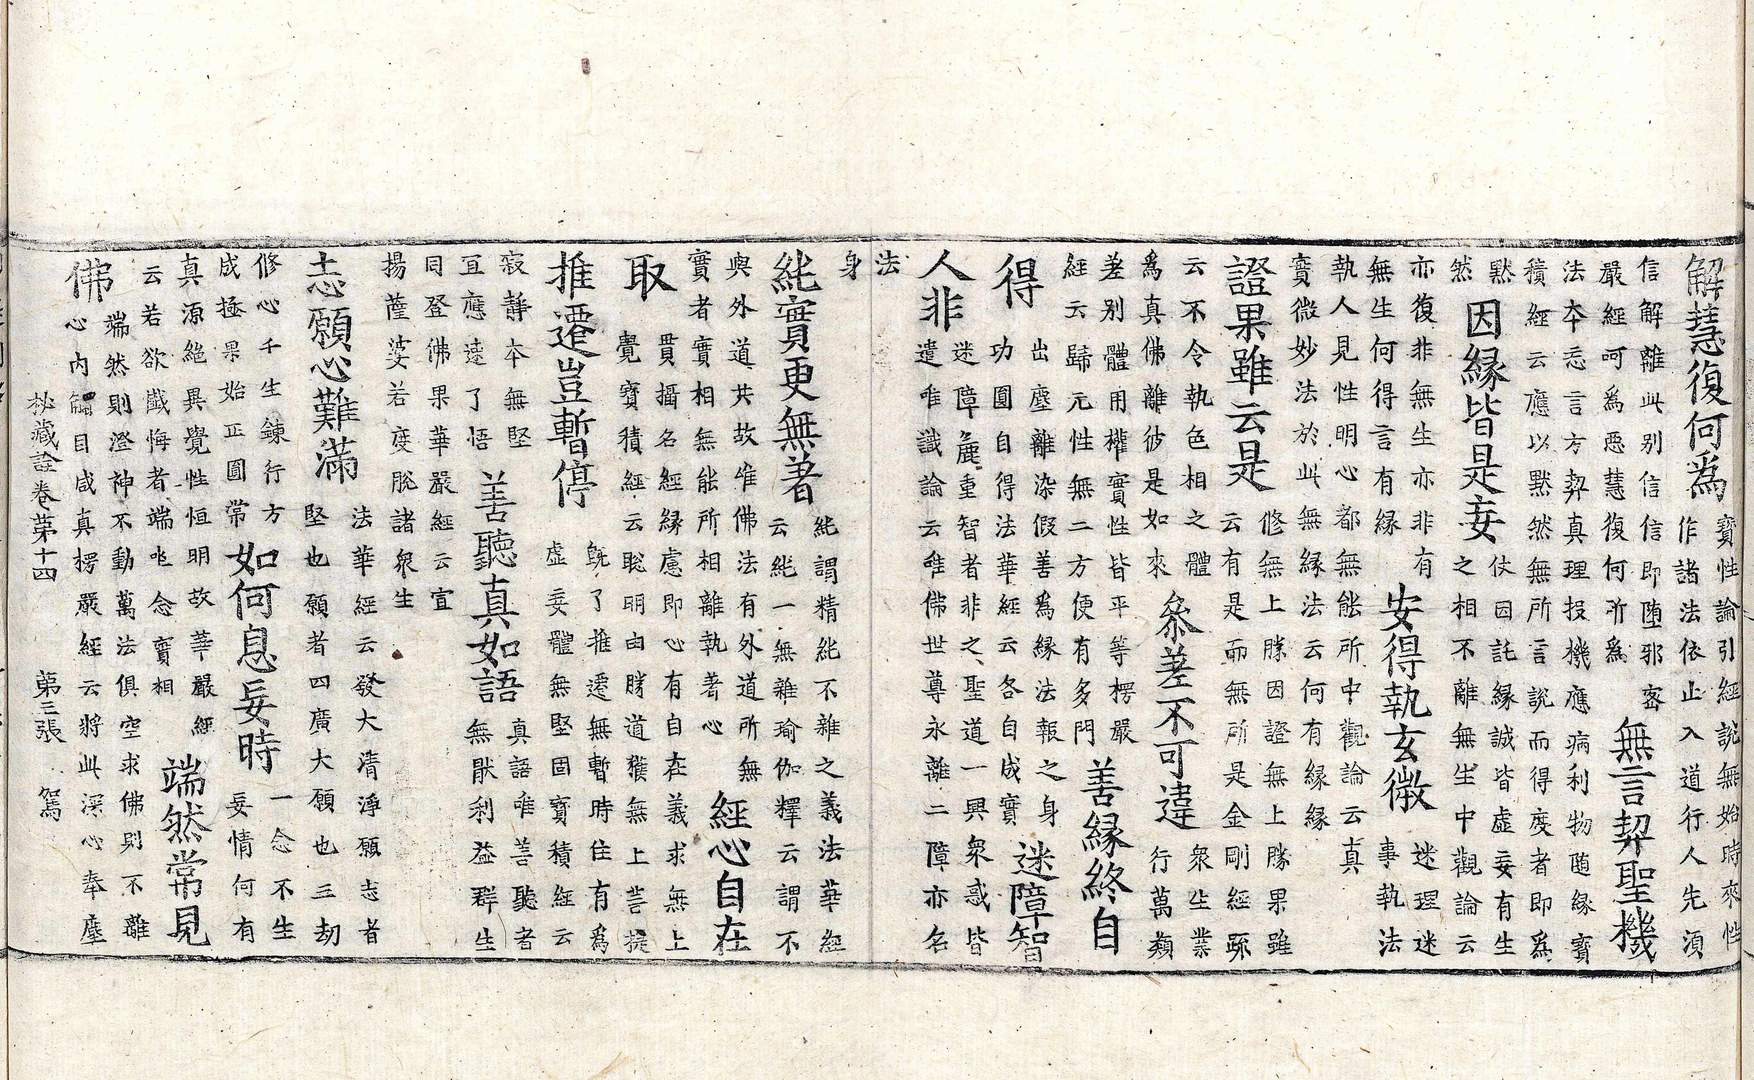 解慧復何爲
寶性論引經説無始時來性
作諸法依止入道行人先湏
信解離此别信信即墮邪宻
嚴經呵爲惡慧復何所爲
無言契聖機
法夲忘言方契真理投機應病利物随緣寶
積經云應以默然無所言說而得度者即爲
默
然
因緣皆是妄
仗因託緣誠皆虛妄有生
之相不離無生中觀論云
亦復非無生亦非有
無生何得言有緣
安得執玄微
迷理迷
事執法
執人見性明心都無能所中觀論云真
實微妙法於此無緣法云何有緣緣
證果雖云是
修無上勝因證無上勝果雖
云有是而無所是金剛經䟽
云不令執色相之體
爲真佛離彼是如來
叅差不可違
衆生業
行萬類
差别體用權實性皆平等楞嚴
經云歸元性無二方便有多門
善緣終自
得
出塵離染假善爲緣法報之身
功圓自得法華經云各自成實
迷障智
人非
迷障麁重智者非之聖道一興衆惑皆
遣唯識論云唯佛世尊永離二障亦名
法
身
純實更無著
純謂精純不雜之義法華經
云純一無雜瑜伽釋云謂不
與外道共故唯佛法有外道所無
實者實相無能所相離執著心
經心自在
取
貫攝名經緣慮即心有自在義求無上
覺寶積經云聡明由勝道獲無上菩提
推遷豈暫停
旣了推遷無暫時住有爲
虚妄體無堅固寶積經云
寂靜夲無堅
宜應速了悟
善聽真如語
真語唯善聽者
無猒利益群生
同登佛果華嚴經云宜
揚薩婆若度脫諸衆生
志願心難滿
法華經云發大清淨願志者
堅也願者四廣大願也三劫
修心千生鍊行方
成極果始正圓常
如何息妄時
一念不生
妄情何有
真源絶異覺性恒明故華嚴經
云若欲懺悔者端坐念實相
端然常見
佛
端然則澄神不動萬法俱空求佛則不離
心內觸目咸真楞嚴經云將此深心奉塵
秘藏詮卷第十四 第三張 駕